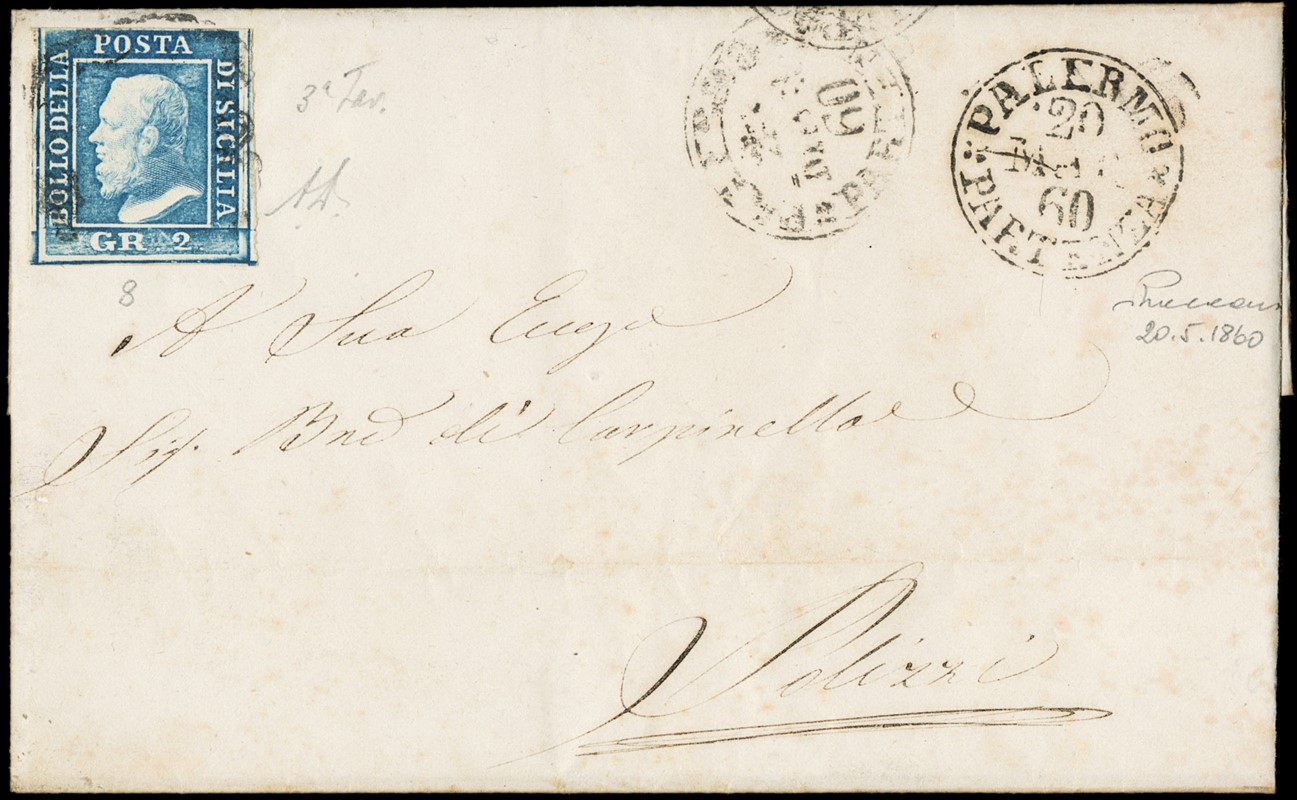 POSTA
BOLLO DELLA
DI SICILIA
GR. 2.
3ª Tav.
8
PALERMO
20
MAG
60
PARTENZA
20.5.1860
A Sua Eccza
Sig. Bne di Carpinello
Polizzi